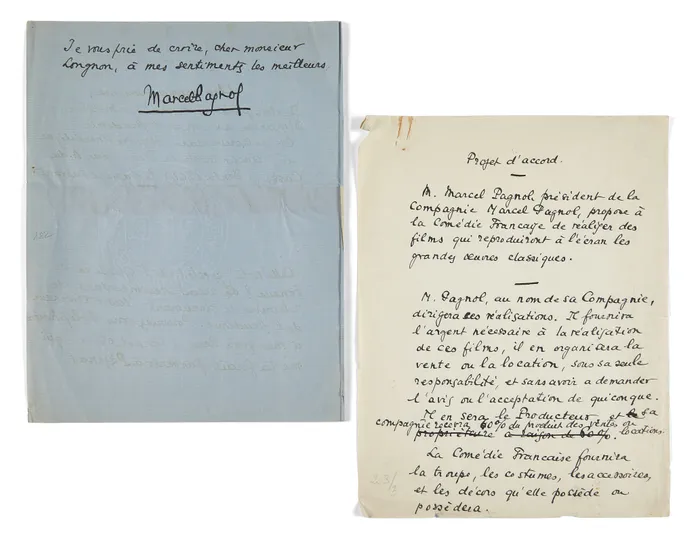 Je vous prie de croire, cher monsieur
Longnon, à mes sentiments les meilleurs.
Marcel Pagnol
Projet d'accord.
M. Marcel Pagnol, président de la
Compagnie Marcel Pagnol, propose à
la Comédie Française de réaliser des
films qui reproduiront à l'écran les
grandes œuvres classiques.
M. Pagnol, au nom de sa Compagnie,
dirigera ces réalisations. Il fournira
l'argent nécessaire à la réalisation
de ces films, il en organisera la
vente ou la location, sous sa seule
responsabilité, et sans avoir a demander
l'avis ou l'acceptation de quiconque.
Il en sera le Producteur, et le sa
compagnie recevra 60% du produit des ventes ou
propriétaire à raison de 60%. locations.
La Comédie Francaise fournira
la troupe, les costumes, les accessoires,
et les décors qu'elle possède ou
possèdera.